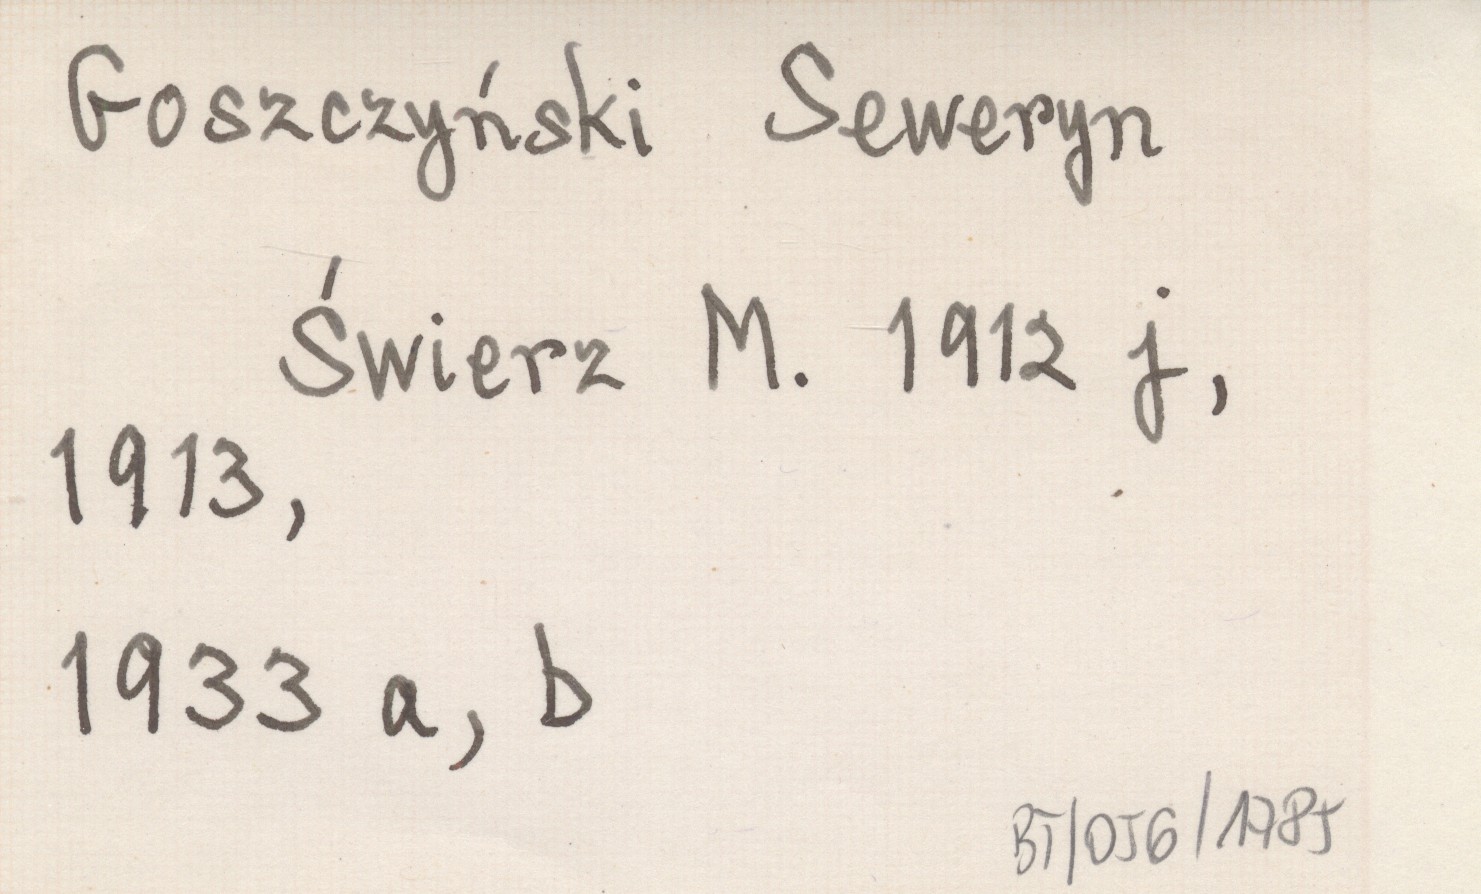 Goszczyński Seweryn
Świerz M. 1912 j,
1913,
1933 a, b
BT/OJG/1785